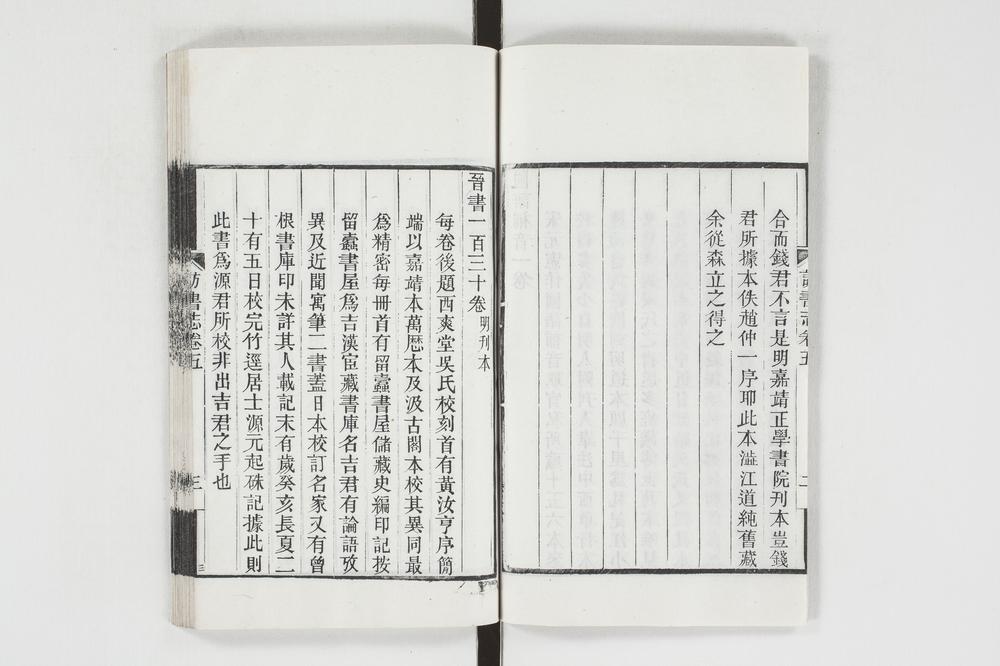 合而錢君不言是明嘉靖正學書院刊本豈錢
君所據本佚趙仲一序耶此本澁江道純舊藏
余從森立之得之
訪書志卷五
二
晉書一百三十卷明刊本
每卷後題西爽堂吳氏校刻首有黃汝亨序簡
端以嘉靖本萬厯本及汲古閣本校其異同最
爲精密每冊首有留蠧書屋儲藏史編印記按
留蠧書屋爲吉漢宦藏書庫名吉君有論語攷
異及近聞寓筆二書蓋日本校訂名家又有曾
根書庫印未詳其人載記末有歲癸亥長夏二
十有五日校完竹逕居士源元起硃記據此則
此書爲源君所校非出吉君之手也
訪書志卷五
三